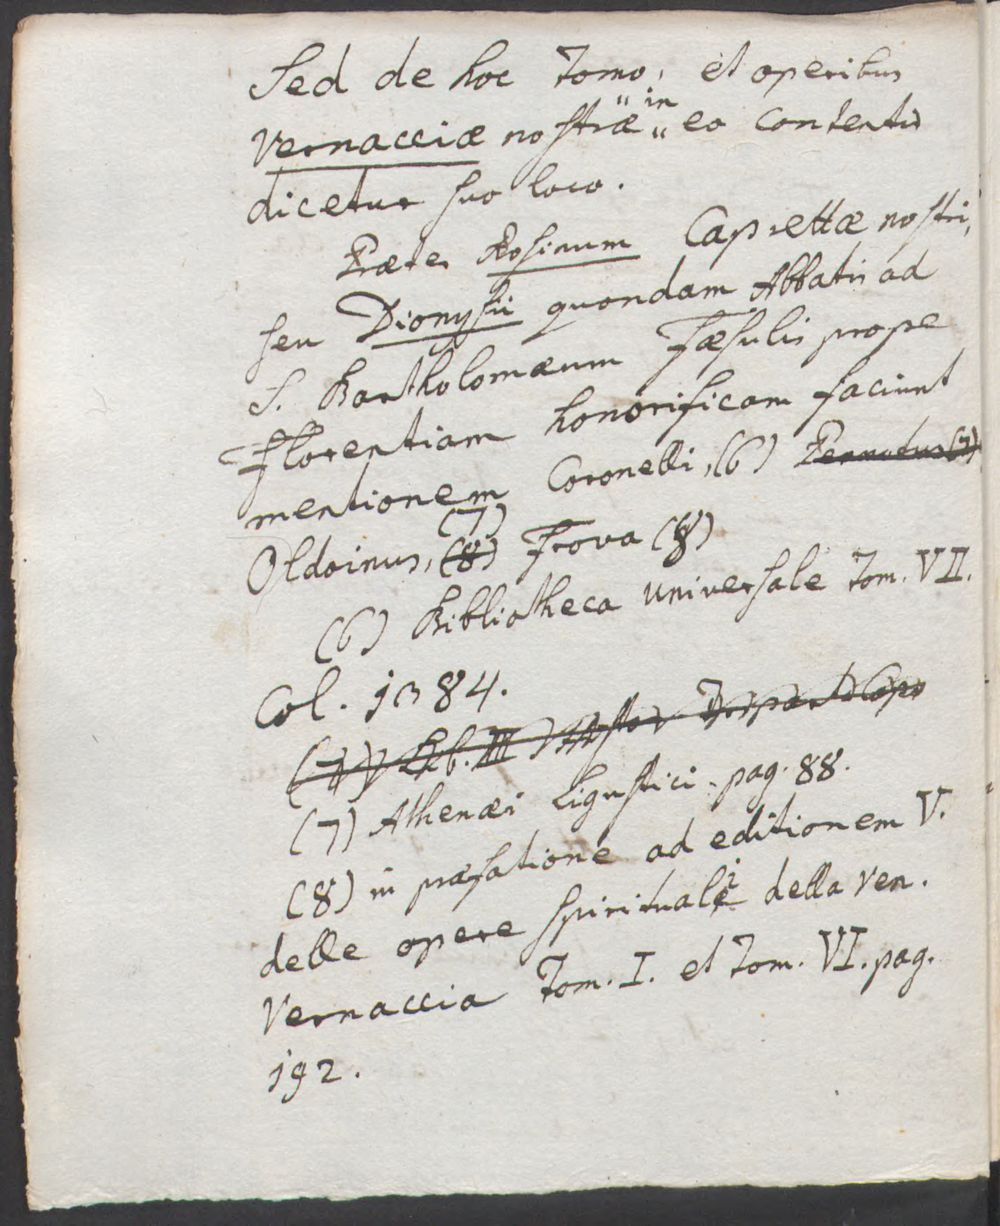 Sed de hoc Tomo, et operibus
Vernacciæ nostræ in eo contentis
dicetur suo loco.
Præter Rosinum Caprettæ nostri,
seu Dionysii quondam Abbatis ad
S. Bartholomæum Fæsulis prope
Florentiam honorificam faciunt
mentionem Coronelli, (6) Pennotus (7)
Oldoinus, (8) (7) Frova (8)
(6) Bibliotheca universale Tom. VII.
Col. 1384.
(7) Lib. III Histor Tripart Cap
(7) Athenæi Ligustici. pag. 88.
(8) in præfatione ad editionem V.
delle opere spirituali della Ven.
Vernaccia Tom. I. et Tom. VI. pag.
192.